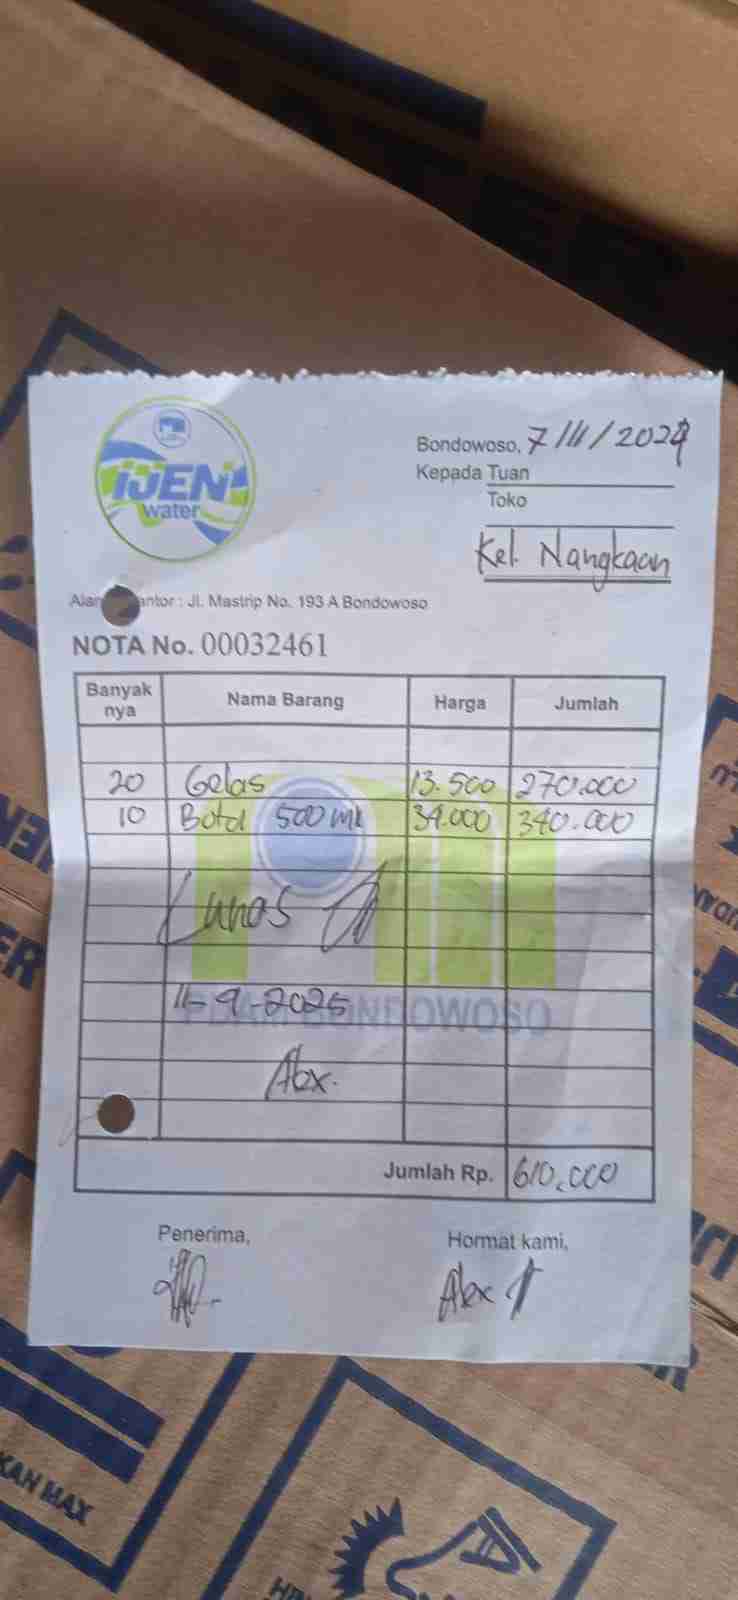 IJEN
water
Bondowoso, 7/III/2024
Kepada Tuan
Toko
Kel. Nangkaan
Kantor : Jl. Mastrip No. 193 A Bondowoso
NOTA No. 00032461
Banyak nya Nama Barang Harga Jumlah
20 Gelas 13.500 270.000
10 Botol 500 ml 34.000 340.000
Lunas
11-9-2025
PDAM BONDOWOSO
Alex.
Jumlah Rp. 610.000
Penerima, Hormat kami,
Alex
KAN MAX